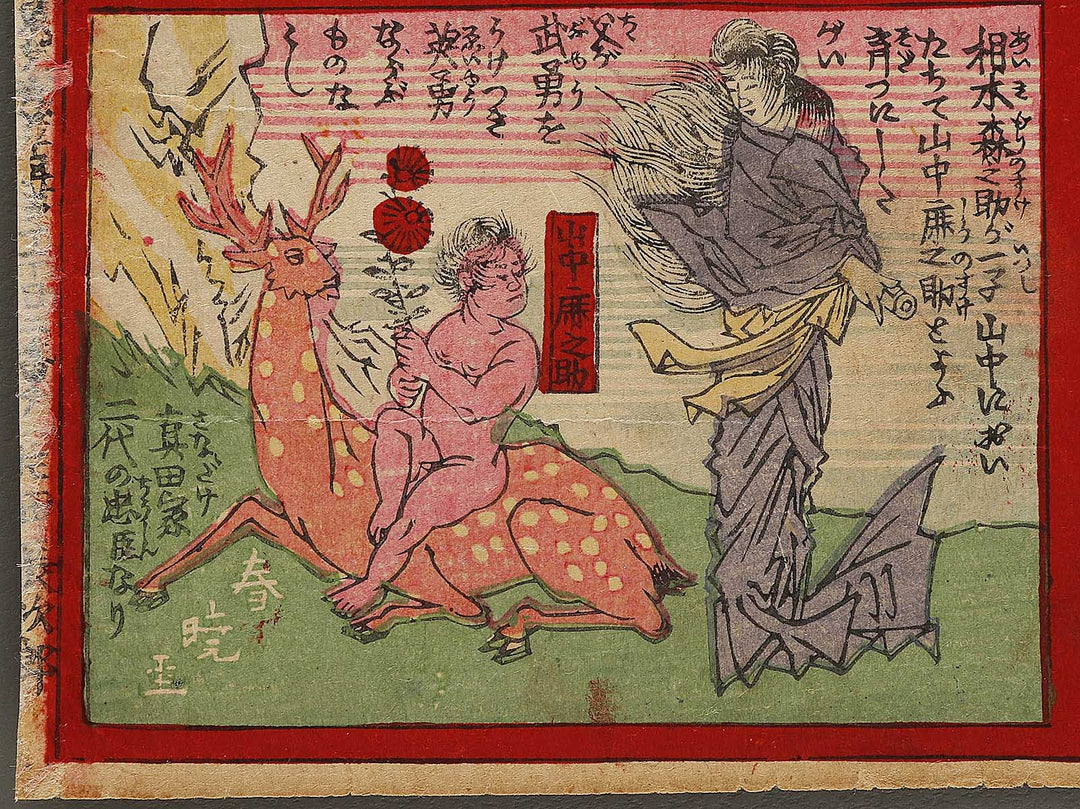 相木森之助が一子山中におい
たちて山中鹿之助とよぶ
育つにした
がい
父が
武勇を
うけつぎ
英勇
ならぶ
ものな
し
山中鹿之助
真田家
二代の忠臣なり
春暁